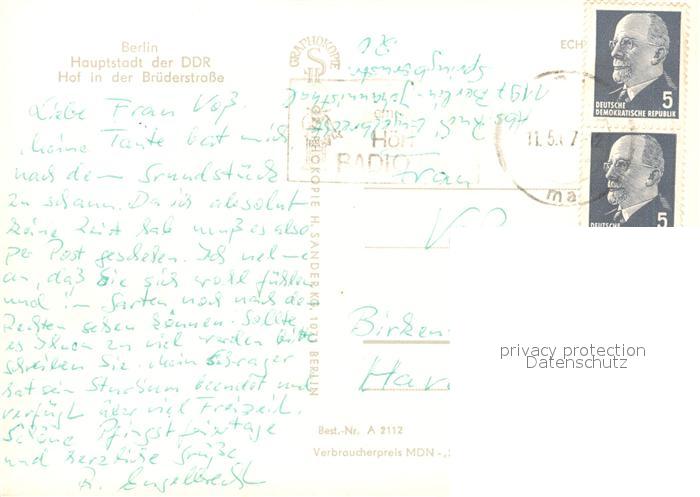 Berlin
Hauptstadt der DDR
Hof in der Brüderstraße
Liebe Frau Voß.
Meine Tante bat mich
nach dem Grundstück
zu schaun. Da ich absolut
keine Zeit hab muß es also
per Post geschehen. Ich nehme
an, daß Sie sich wohl fühlen
und im Garten noch nach dem
Rechten sehen können. Sollte
es Ihnen zu viel werden bitte
schreiben Sie. Mein Schwager
hat sein Studium beendet und
verfügt über viel Freizeit.
Schöne Pfingstfeiertage
und herzliche Grüße
R. Engelbrecht
GRAPHOKOPIE
GRAPHOKOPIE H. SANDER KG, 1071 BERLIN
Abs. Rud. Engelbrecht
1197 Berlin-Johannisthal
Springbornstr.
ECH
Hör
RADIO
11.5.
ma
DEUTSCHE
DEMOKRATISCHE REPUBLIK
5
DEUTSCHE
5
Frau
V
Birken
Hav
Best.-Nr. A 2112
Verbraucherpreis MDN -,
privacy protection
Datenschutz